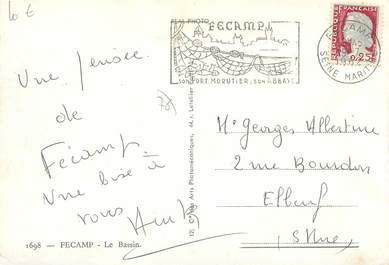 10 €
REAL PHOTO
FECAMP
SON PORT MORUTIER, SON ABBAYE
REPUBLIQUE FRANÇAISE
0,25
FECAMP
SEINE MARITIME
Une pensée
de
Fécamp.
Une Bise à
vous
Mr Georges Albertine
2 rue Bourdon
Elbeuf
S/Mme
des Arts Photomécaniques,
Letellier
1698 — FECAMP - Le Bassin.